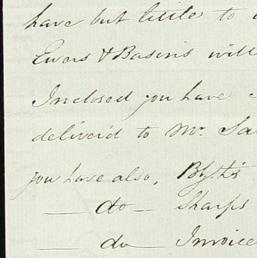 have but little to
Ewers & Basins will
Inclosed you have
deliver'd to Mr. Sa
you have also,
do Sharps
do Invoice